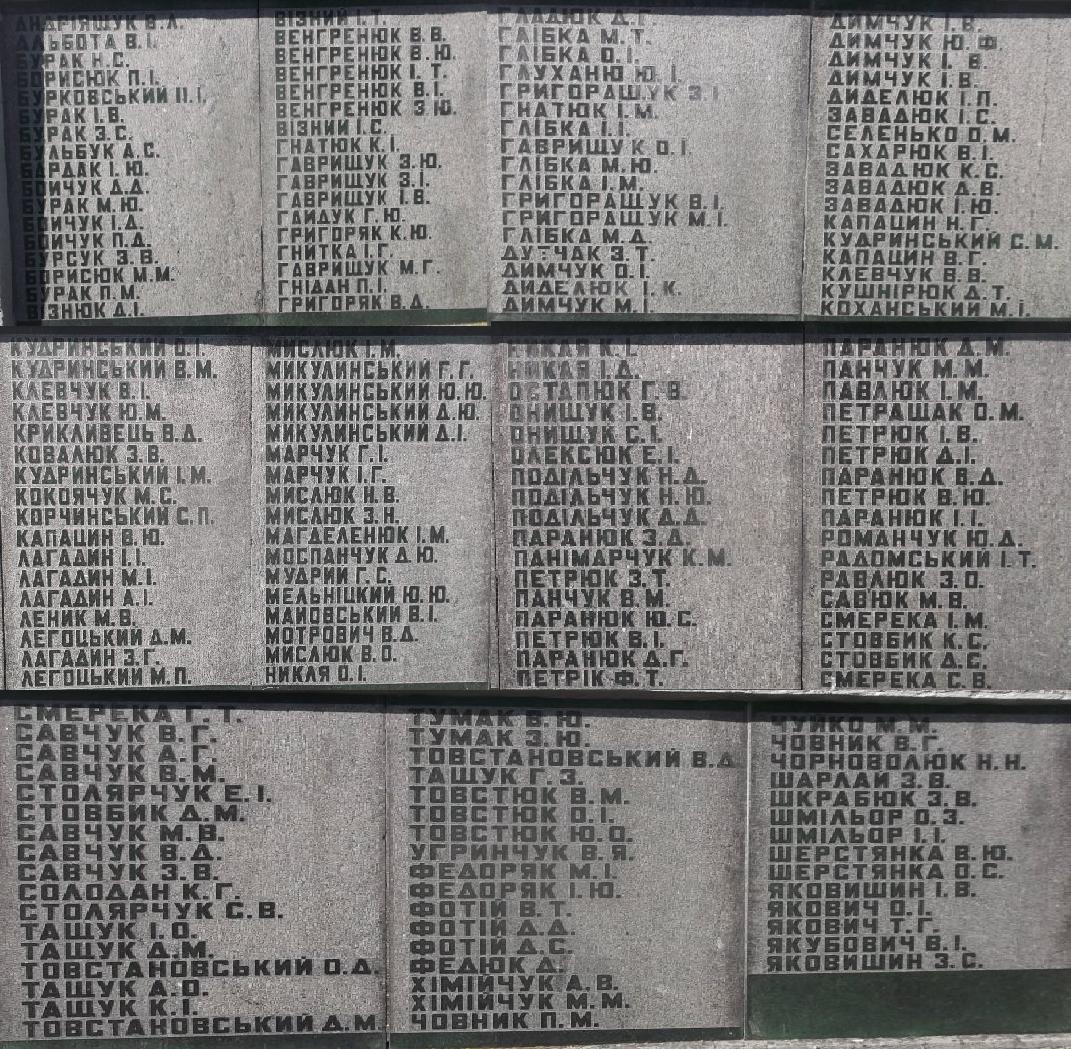 АНДРІЯЩУК В.Л.
АЛЬБОТА В.І.
БУРАК Н.С.
БОРИСЮК П.І.
БУРКОВСЬКИЙ П.І.
БУРАК І.В.
БУРАК З.С.
БУЛЬБУК А.С.
БАРДАК І.Ю.
БОЙЧУК Д.Д.
БУРАК М.Ю.
БОЙЧУК І.Д.
БОЙЧУК П.Д.
БУРСУК З.В.
БОРИСЮК М.М.
БУРАК П.М.
ВІЗНЮК Д.І.
ВІЗНИЙ І.Т.
ВЕНГРЕНЮК В.В.
ВЕНГРЕНЮК В.Ю.
ВЕНГРЕНЮК І.Т.
ВЕНГРЕНЮК В.І.
ВЕНГРЕНЮК З.Ю.
ВІЗНИЙ І.С.
ГНАТЮК К.І.
ГАВРИЩУК З.Ю.
ГАВРИЩУК З.І.
ГАВРИЩУК І.В.
ГАЙДУК Г.Ю.
ГРИГОРЯК К.Ю.
ГНИТКА І.Г.
ГАВРИЩУК М.Г.
ГНІДАН П.І.
ГРИГОРЯК В.Д.
ГЛАДЮК Д.Г.
ГЛІБКА М.Т.
ГЛІБКА О.І.
ГЛУХАНЮ Ю.І.
ГРИГОРАЩУК З.І.
ГНАТЮК І.М.
ГЛІБКА І.І.
ГАВРИЩУК О.І.
ГЛІБКА М.Ю.
ГЛІБКА І.М.
ГРИГОРАЩУК В.І.
ГРИГОРАЩУК М.І.
ГЛІБКА М.Д.
З.Т.
ДИМЧУК О.І.
ДИДЕЛЮК І.К.
ДИМЧУК М.І.
ДИМЧУК І.В.
ДИМЧУК Ю.Ф.
ДИМЧУК І.В.
ДИМЧУК І.В.
ДИДЕЛЮК І.П.
ЗАВАДЮК І.С.
СЕЛЕНЬКО О.М.
САХАРЮК В.І.
ЗАВАДЮК К.С.
ЗАВАДЮК Д.В.
ЗАВАДЮК І.Ю.
КАПАЦИН Н.Г.
КУДРИНСЬКИЙ С.М.
КАПАЦИН В.Г.
КЛЕВЧУК В.В.
КУШНІРЮК Д.Т.
КОХАНСЬКИЙ М.І.
КУДРИНСЬКИЙ О.І.
КУДРИНСЬКИЙ В.М.
КЛЕВЧУК В.І.
КЛЕВЧУК Ю.М.
КРИКЛИВЕЦЬ В.Д.
КОВАЛЮК З.В.
КУДРИНСЬКИЙ І.М.
КОКОЯЧУК М.С.
КОРЧИНСЬКИЙ С.П.
КАПАЦИН В.Ю.
ЛАГАДИН І.І.
ЛАГАДИН М.І.
ЛАГАДИН А.І.
ЛЕНИК М.В.
ЛЕГОЦЬКИЙ Д.М.
ЛАГАДИН З.Г.
ЛЕГОЦЬКИЙ М.П.
МИСЛЮК І.М.
МИКУЛИНСЬКИЙ Г.Г.
МИКУЛИНСЬКИЙ Ю.Ю.
МИКУЛИНСЬКИЙ Д.Ю.
МИКУЛИНСЬКИЙ Д.І.
МАРЧУК Г.І.
МАРЧУК І.Г.
МИСЛЮК Н.В.
МИСЛЮК З.Н.
МАГДЕЛЕНЮК І.М.
МОСПАНЧУК Д.Ю.
МУДРИЙ Г.С.
МЕЛЬНІЦКИЙ Ю.Ю.
МАЙОВСЬКИЙ В.І.
МОТРОВИЧ В.Д.
МИСЛЮК В.О.
НИКЛЯ О.І.
НИКЛЯ К.І.
НИКЛЯ І.Д.
ОСТАПЮК Г.В.
ОНИЩУК І.В.
ОНИЩУК С.І.
ОЛЕКСЮК Е.І.
ПОДІЛЬЧУК Н.Д.
ПОДІЛЬЧУК Н.Ю.
ПОДІЛЬЧУК Д.Д.
ПАРАНЮК З.Д.
ПАНІМАРЧУК К.М.
ПЕТРЮК З.Т.
ПАНЧУК В.М.
ПАРАНЮК Ю.С.
ПЕТРЮК В.І.
ПАРАНЮК Д.Г.
ПЕТРІК Ф.Т.
ПАРАНЮК Д.М.
ПАНЧУК М.М.
ПАВЛЮК І.М.
ПЕТРАЩАК О.М.
ПЕТРЮК І.В.
ПЕТРЮК Д.І.
ПАРАНЮК В.Д.
ПЕТРЮК В.Ю.
ПАРАНЮК І.І.
РОМАНЧУК Ю.Д.
РАДОМСЬКИЙ І.Т.
РАВЛЮК З.О.
САВ'ЮК М.В.
СМЕРЕКА І.М.
СТОВБИК К.С.
СТОВБИК Д.С.
СМЕРЕКА С.В.
СМЕРЕКА Г.Т.
САВЧУК В.Г.
САВЧУК А.Г.
САВЧУК В.М.
СТОЛЯРЧУК Е.І.
СТОВБИК Д.М.
САВЧУК М.В.
САВЧУК В.Д.
САВЧУК З.В.
СОЛОДАН К.Г.
СТОЛЯРЧУК С.В.
ТАЩУК І.О.
ТАЩУК Д.М.
ТОВСТАНОВСЬКИЙ О.Д.
ТАЩУК А.О.
ТАЩУК К.І.
ТОВСТАНОВСЬКИЙ Д.М
ТУМАК В.Ю.
ТУМАК З.Ю.
ТОВСТАНОВСЬКИЙ В.Д
ТАЩУК Г.З.
ТОВСТЮК В.М.
ТОВСТЮК О.І.
ТОВСТЮК Ю.О.
УГРИНЧУК В.Я.
ФЕДОРЯК М.І.
ФЕДОРЯК І.Ю.
ФОТІЙ В.Т.
ФОТІЙ Д.Д.
ФОТІЙ Д.С.
ФЕДЮК Д.
ХІМІЙЧУК А.В.
ХІМІЙЧУК М.М.
ЧОВНИК П.М.
ЧУЙКО М.М.
ЧОВНИК В.Г.
ЧОРНОВОЛЮК Н.Н.
ШАРЛАЙ З.В.
ШКРАБЮК З.В.
ШМІЛЬОР О.З.
ШМІЛЬОР І.І.
ШЕРСТЯНКА В.Ю.
ШЕРСТЯНКА О.С.
ЯКОВИШИН І.В.
ЯКОВИЧ О.І.
ЯКОВИЧ Т.Г.
ЯКУБОВИЧ В.І.
ЯКОВИШИН З.С.